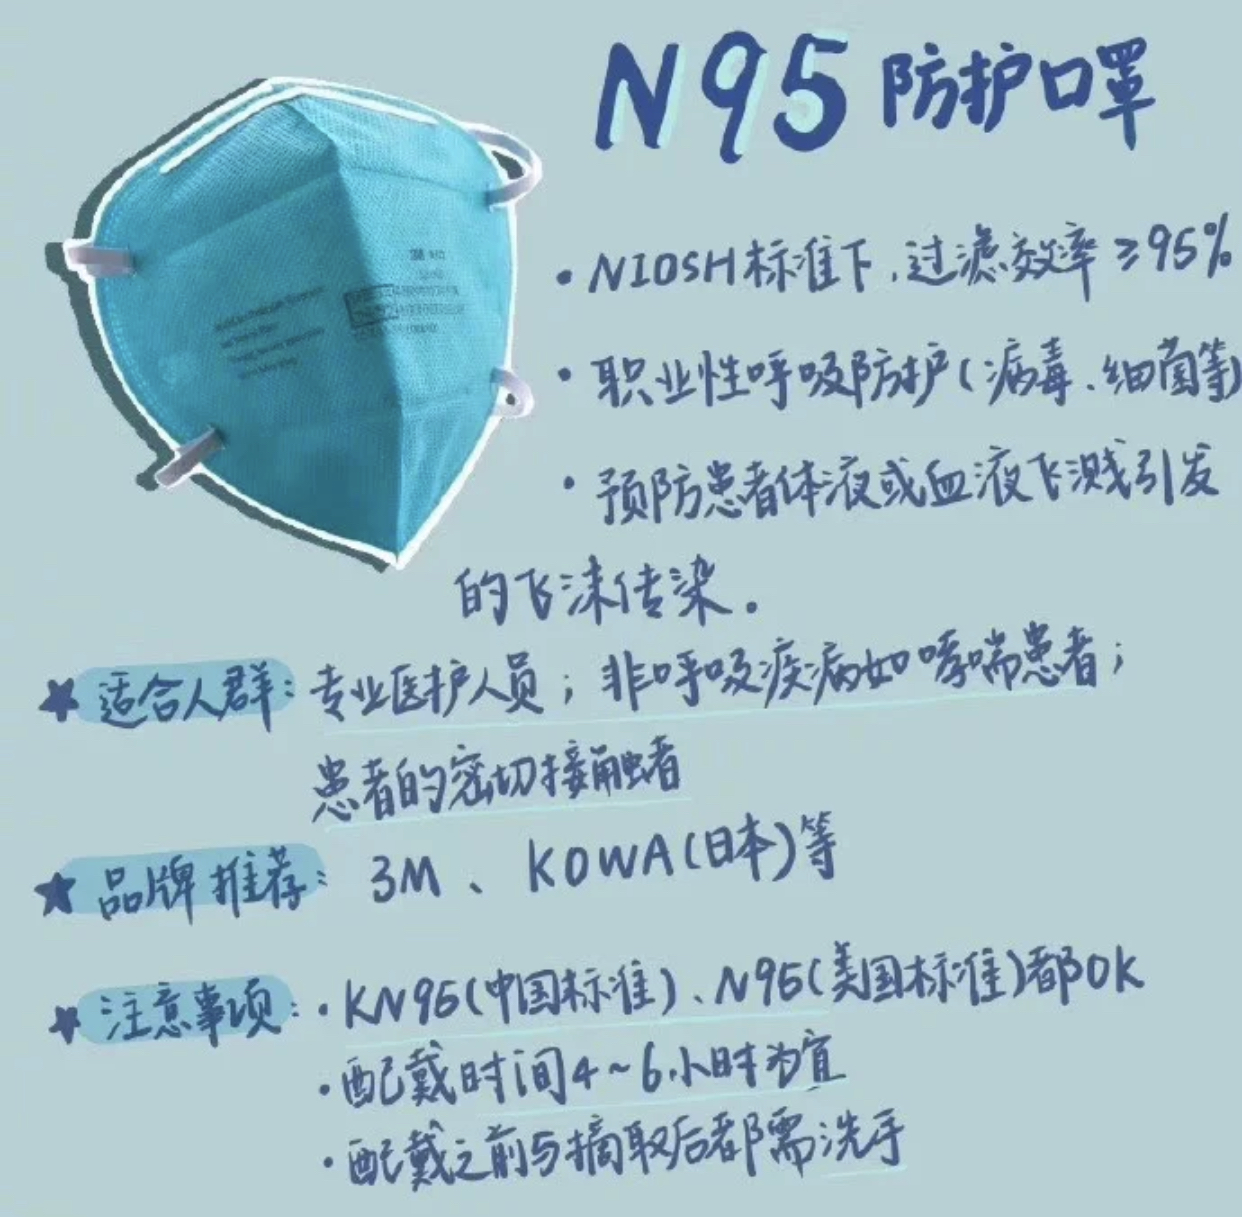 N95 防护口罩
·NIOSH标准下,过滤效率≥95%
·职业性呼吸防护(病毒、细菌等)
·预防患者体液或血液飞溅引发
的飞沫传染。
★适合人群:专业医护人员;非呼吸疾病如哮喘患者;
患者的密切接触者
★品牌推荐:3M、KOWA(日本)等
★注意事项:·KN95(中国标准)、N95(美国标准)都OK
·配戴时间4~6小时为宜
·配戴之前与摘取后都需洗手
3M